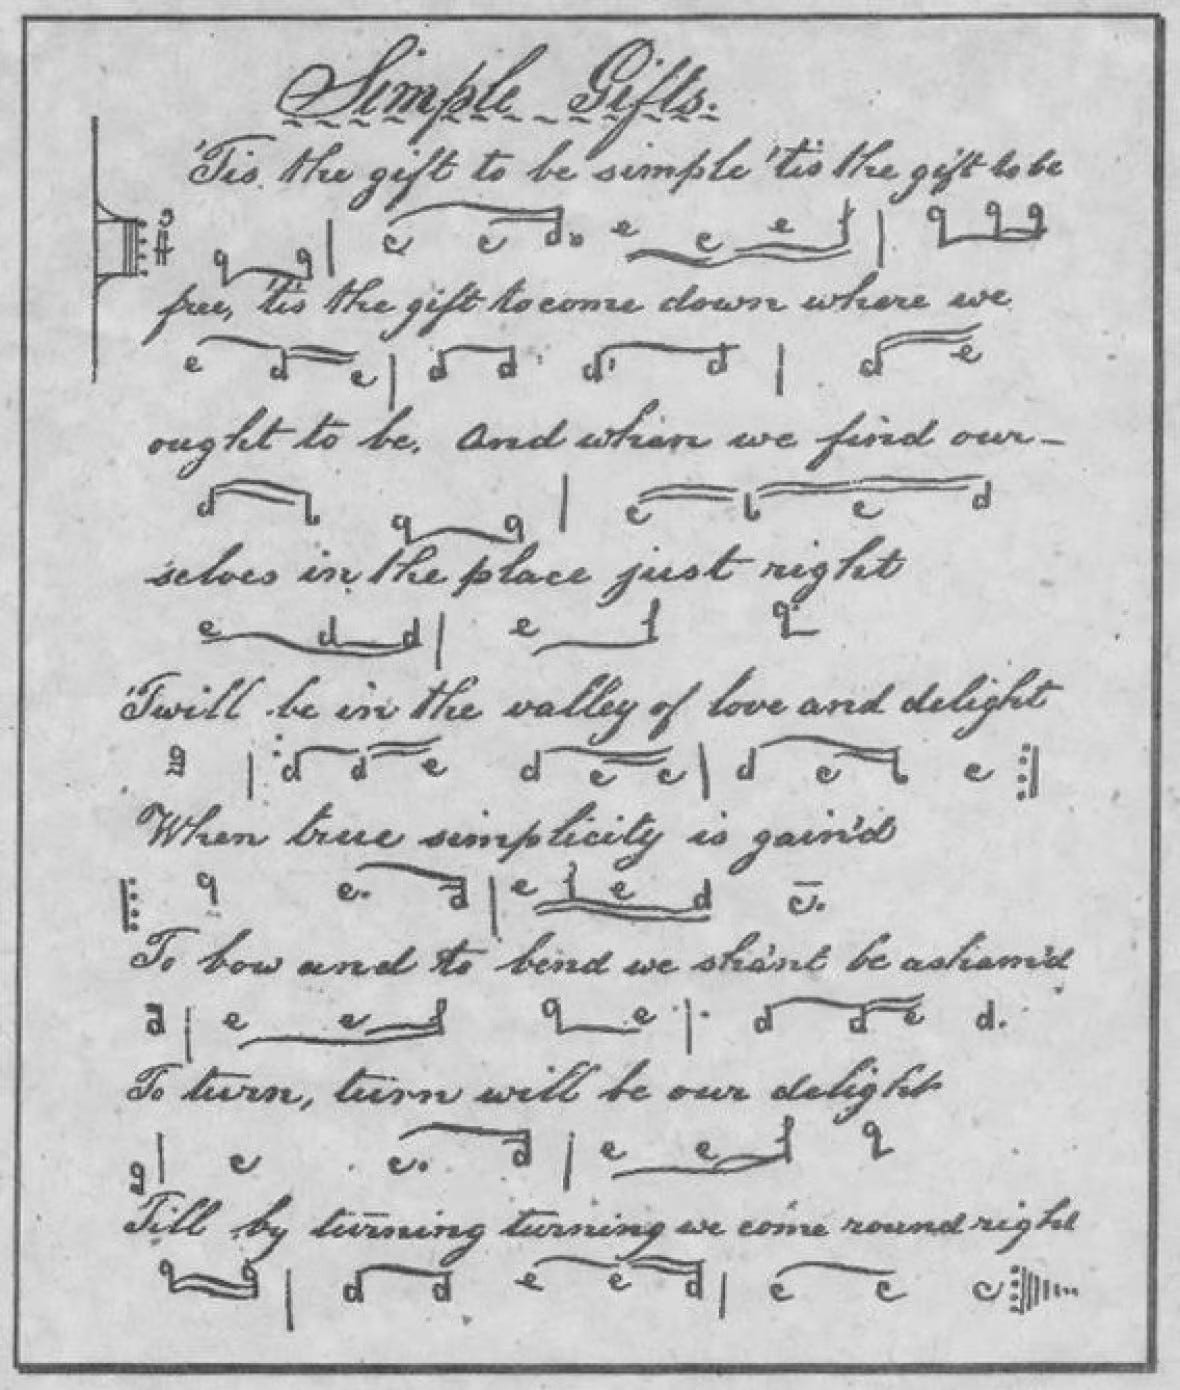 Simple Gifts.
'Tis the gift to be simple 'tis the gift to be
g g | c c d. e c e f | g g g
free, 'tis the gift to come down where we
e d e | d d d d | d e
ought to be. And when we find our-
d b g g | c b c d
selves in the place just right
e d d | e f g
'Twill be in the valley of love and delight
g | d d e d c c | d c b c
When true simplicity is gain'd
g c. d | e f e d c.
To bow and to bend we sha'nt be asham'd
d | e e f g e | d d e d.
To turn, turn will be our delight
g | c c. d | e e f g
Till by turning turning we come round right
g g | d d e c d | c c c